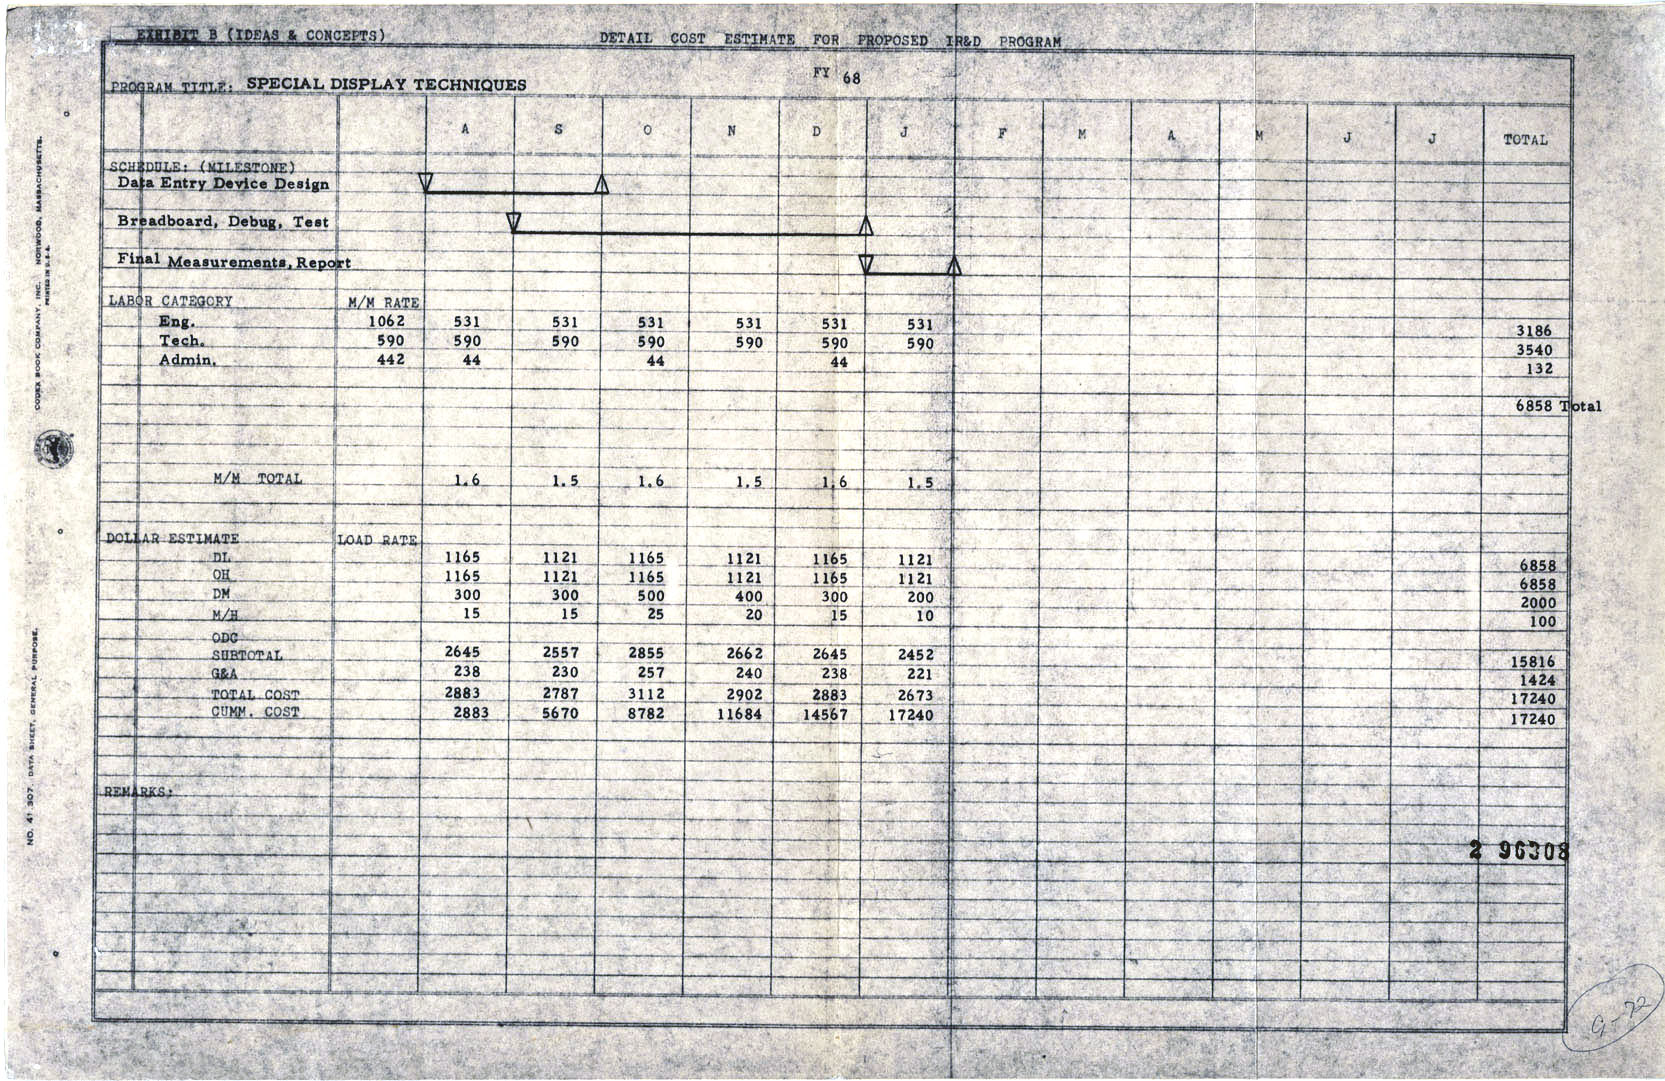 EXHIBIT B (IDEAS & CONCEPTS) DETAIL COST ESTIMATE FOR PROPOSED IR&D PROGRAM
PROGRAM TITLE: SPECIAL DISPLAY TECHNIQUES FY 68
A S O N D J F M A M J J TOTAL
SCHEDULE: (MILESTONE)
Data Entry Device Design
Breadboard, Debug, Test
Final Measurements, Report
LABOR CATEGORY M/M RATE
Eng. 1062 531 531 531 531 531 531 3186
Tech. 590 590 590 590 590 590 590 3540
Admin. 442 44 44 44 132
6858 Total
M/M TOTAL 1.6 1.5 1.6 1.5 1.6 1.5
DOLLAR ESTIMATE LOAD RATE
DL 1165 1121 1165 1121 1165 1121 6858
OH 1165 1121 1165 1121 1165 1121 6858
DM 300 300 500 400 300 200 2000
M/H 15 15 25 20 15 10 100
ODC
SUBTOTAL 2645 2557 2855 2662 2645 2452 15816
G&A 238 230 257 240 238 221 1424
TOTAL COST 2883 2787 3112 2902 2883 2673 17240
CUMM. COST 2883 5670 8782 11684 14567 17240 17240
REMARKS:
2 96308
9-72
CODEX BOOK COMPANY, INC. NORWOOD, MASSACHUSETTS.
PRINTED IN U.S.A.
NO. 41 307 DATA SHEET, GENERAL PURPOSE.